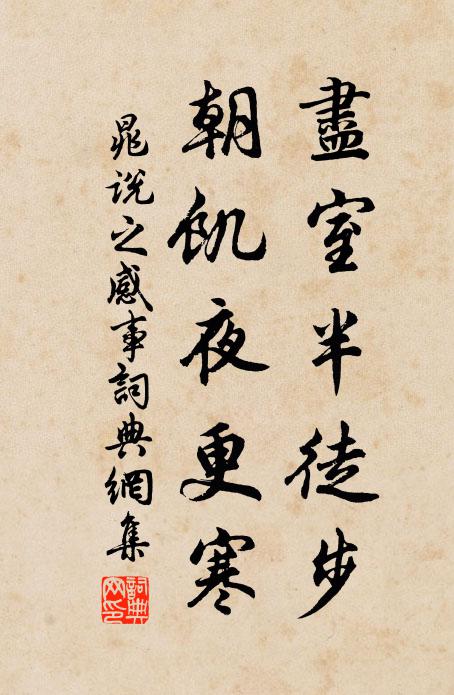 盡室半徒步
朝飢夜更寒
晁說之感事詞典網集
詞典網印